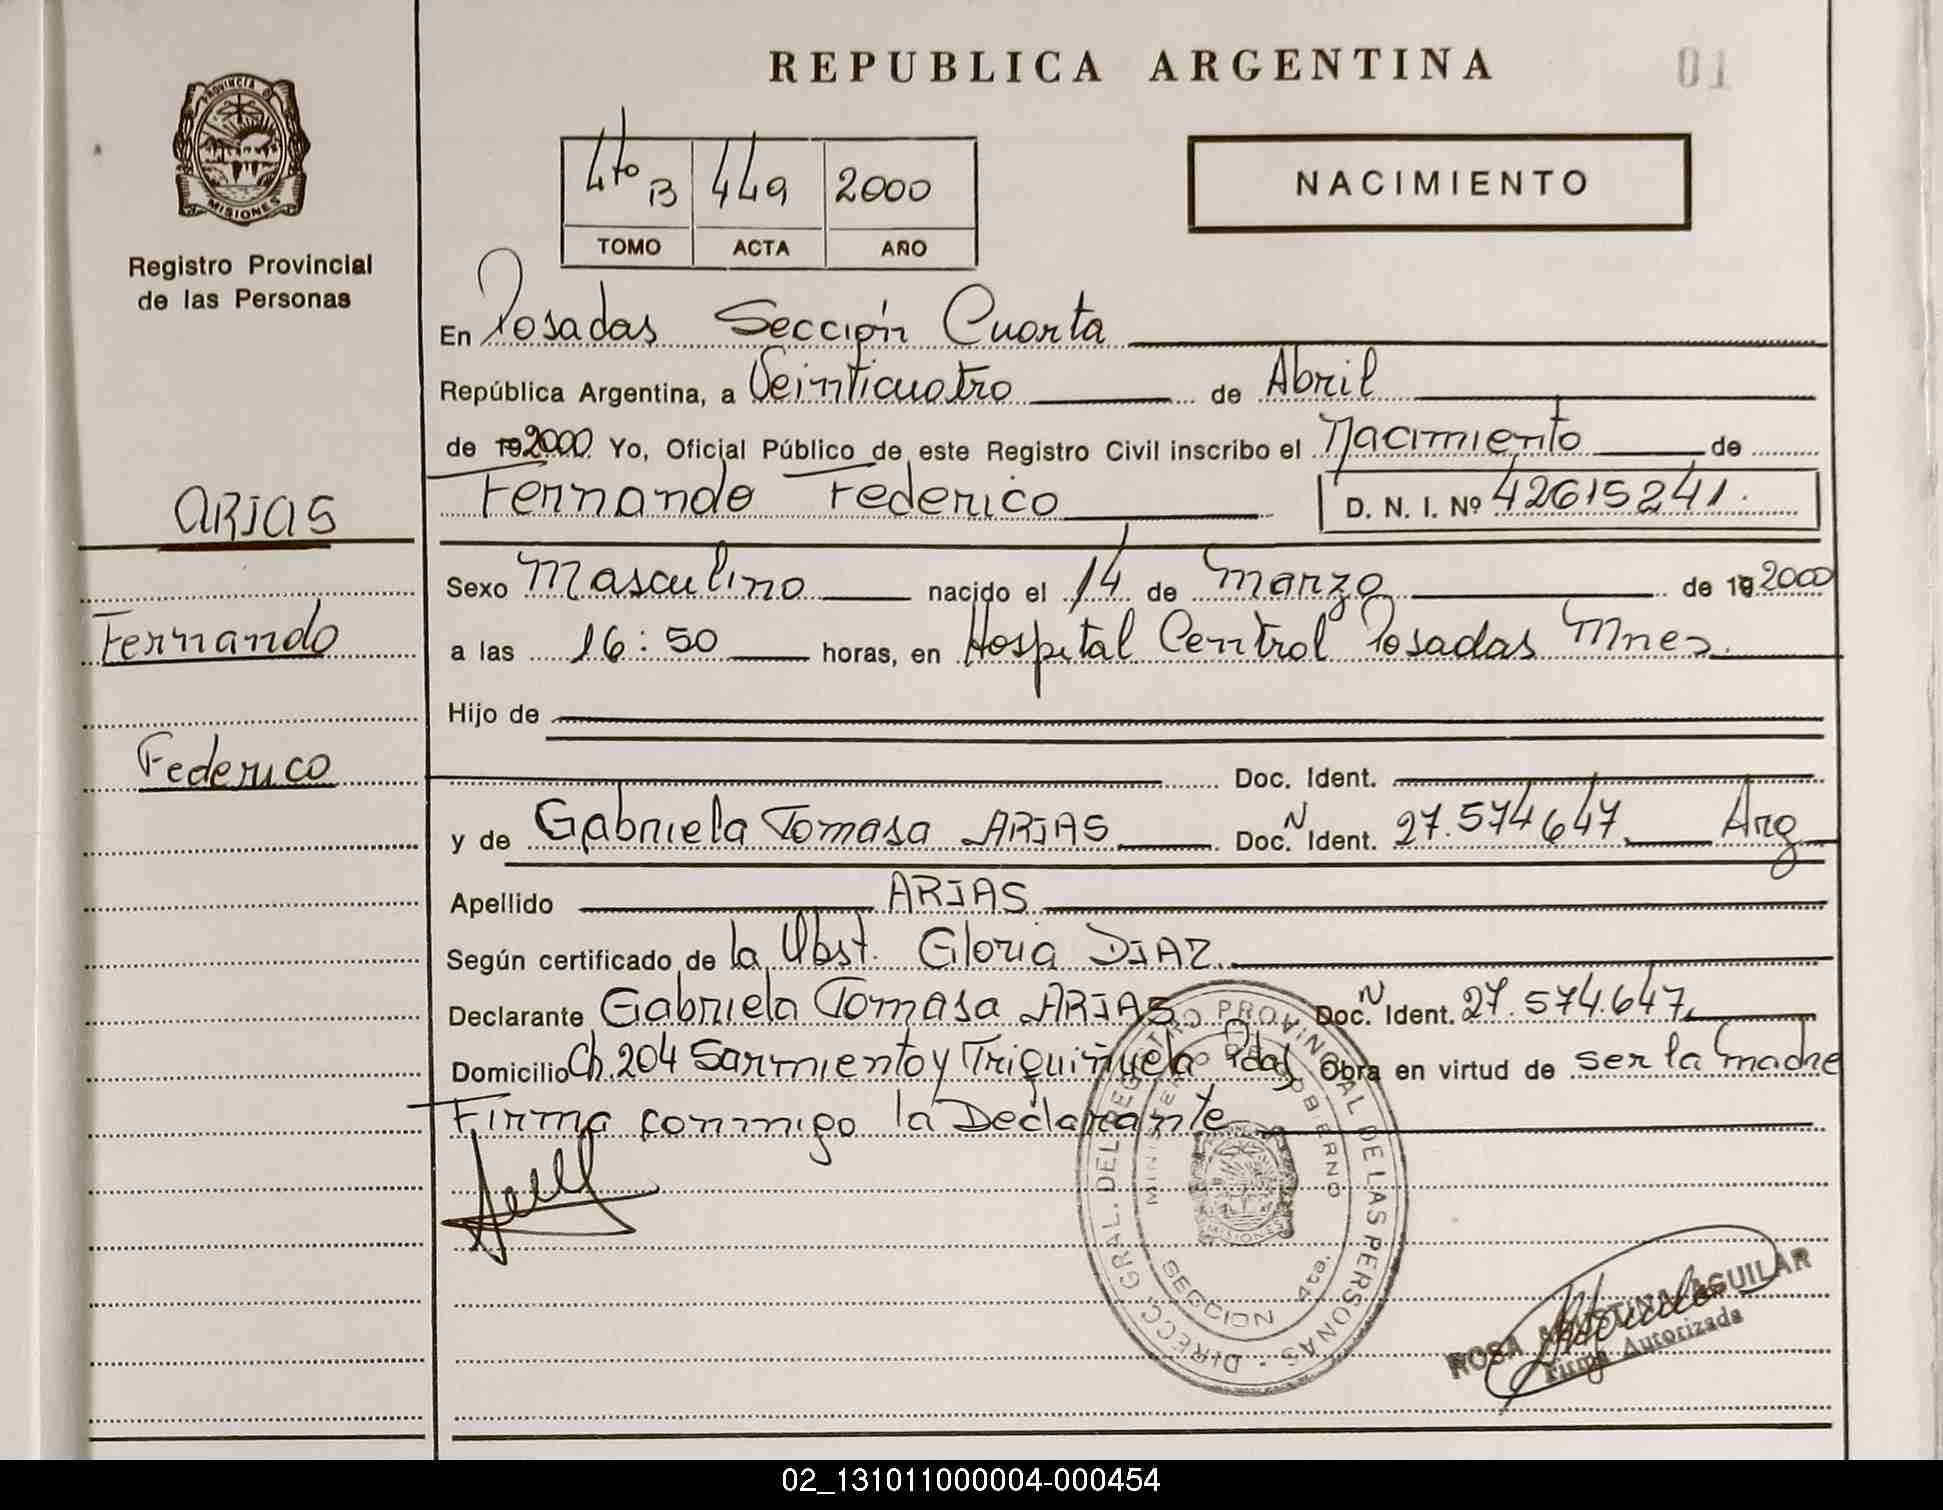 REPUBLICA ARGENTINA
01
PROVINCIA DE
MISIONES
Registro Provincial
de las Personas
4to B 449 2000
TOMO ACTA AÑO
NACIMIENTO
En Posadas Sección Cuarta
República Argentina, a Veinticuatro de Abril
de 192000 Yo, Oficial Público de este Registro Civil inscribo el Nacimiento de
Fernando Federico D. N. I. Nº 42615241.
ARIAS
Fernando
Federico
Sexo Masculino nacido el 14 de Marzo de 192000
a las 16:50 horas, en Hospital Central Posadas Mnes.
Hijo de
Doc. Ident.
y de Gabriela Tomasa ARIAS Doc. N Ident. 27.574647 Arg
Apellido ARIAS
Según certificado de la Obst. Gloria DIAZ
Declarante Gabriela Tomasa ARIAS Doc. N Ident. 27.574.647
Domicilio Ch. 204 Sarmiento y Triquiñuela Pdas. Obra en virtud de ser la madre
Firma conmigo la Declarante
DIRECC. GRAL. DEL REGISTRO PROVINCIAL DE LAS PERSONAS
MINISTERIO DE GOBIERNO
MISIONES
SECCION 4ta.
ROSA AGUSTINA AGUILAR
Firma Autorizada
02_131011000004-000454